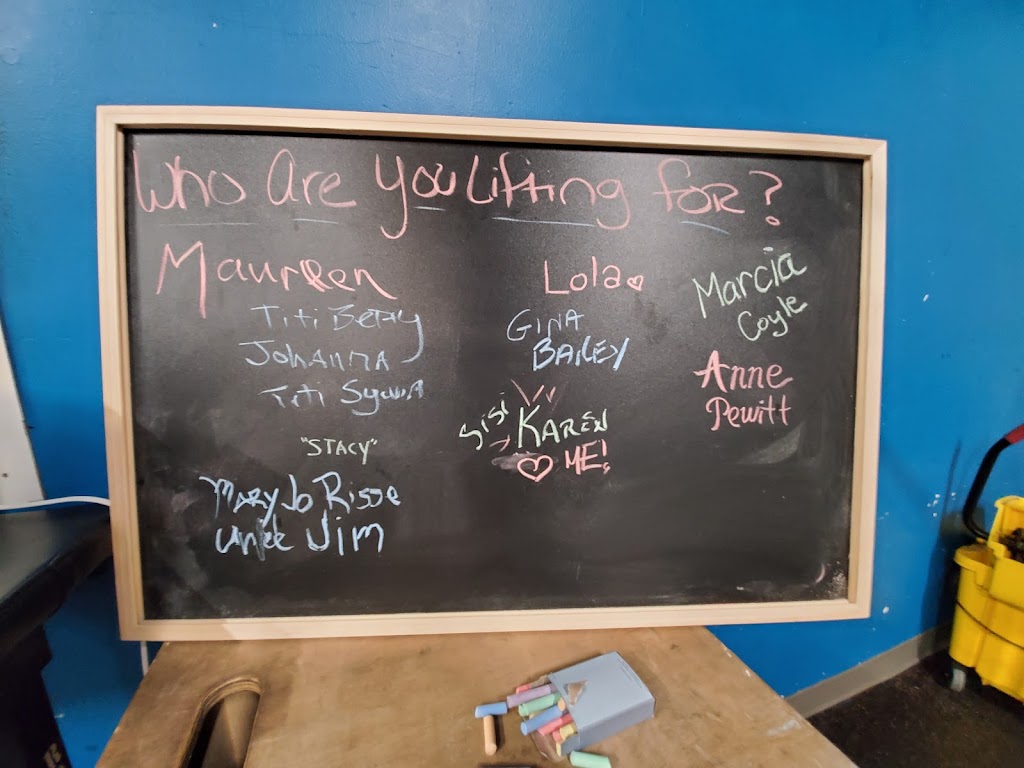 Who Are You Lifting for?
Maureen
Titi Betty
Johanna
Titi Sylvia
"STACY"
Mary Jo Risse
Uncle Jim
Lola
GINA
BAILEY
SiSi
KAREN
ME!
Marcia
Coyle
Anne
Pewitt